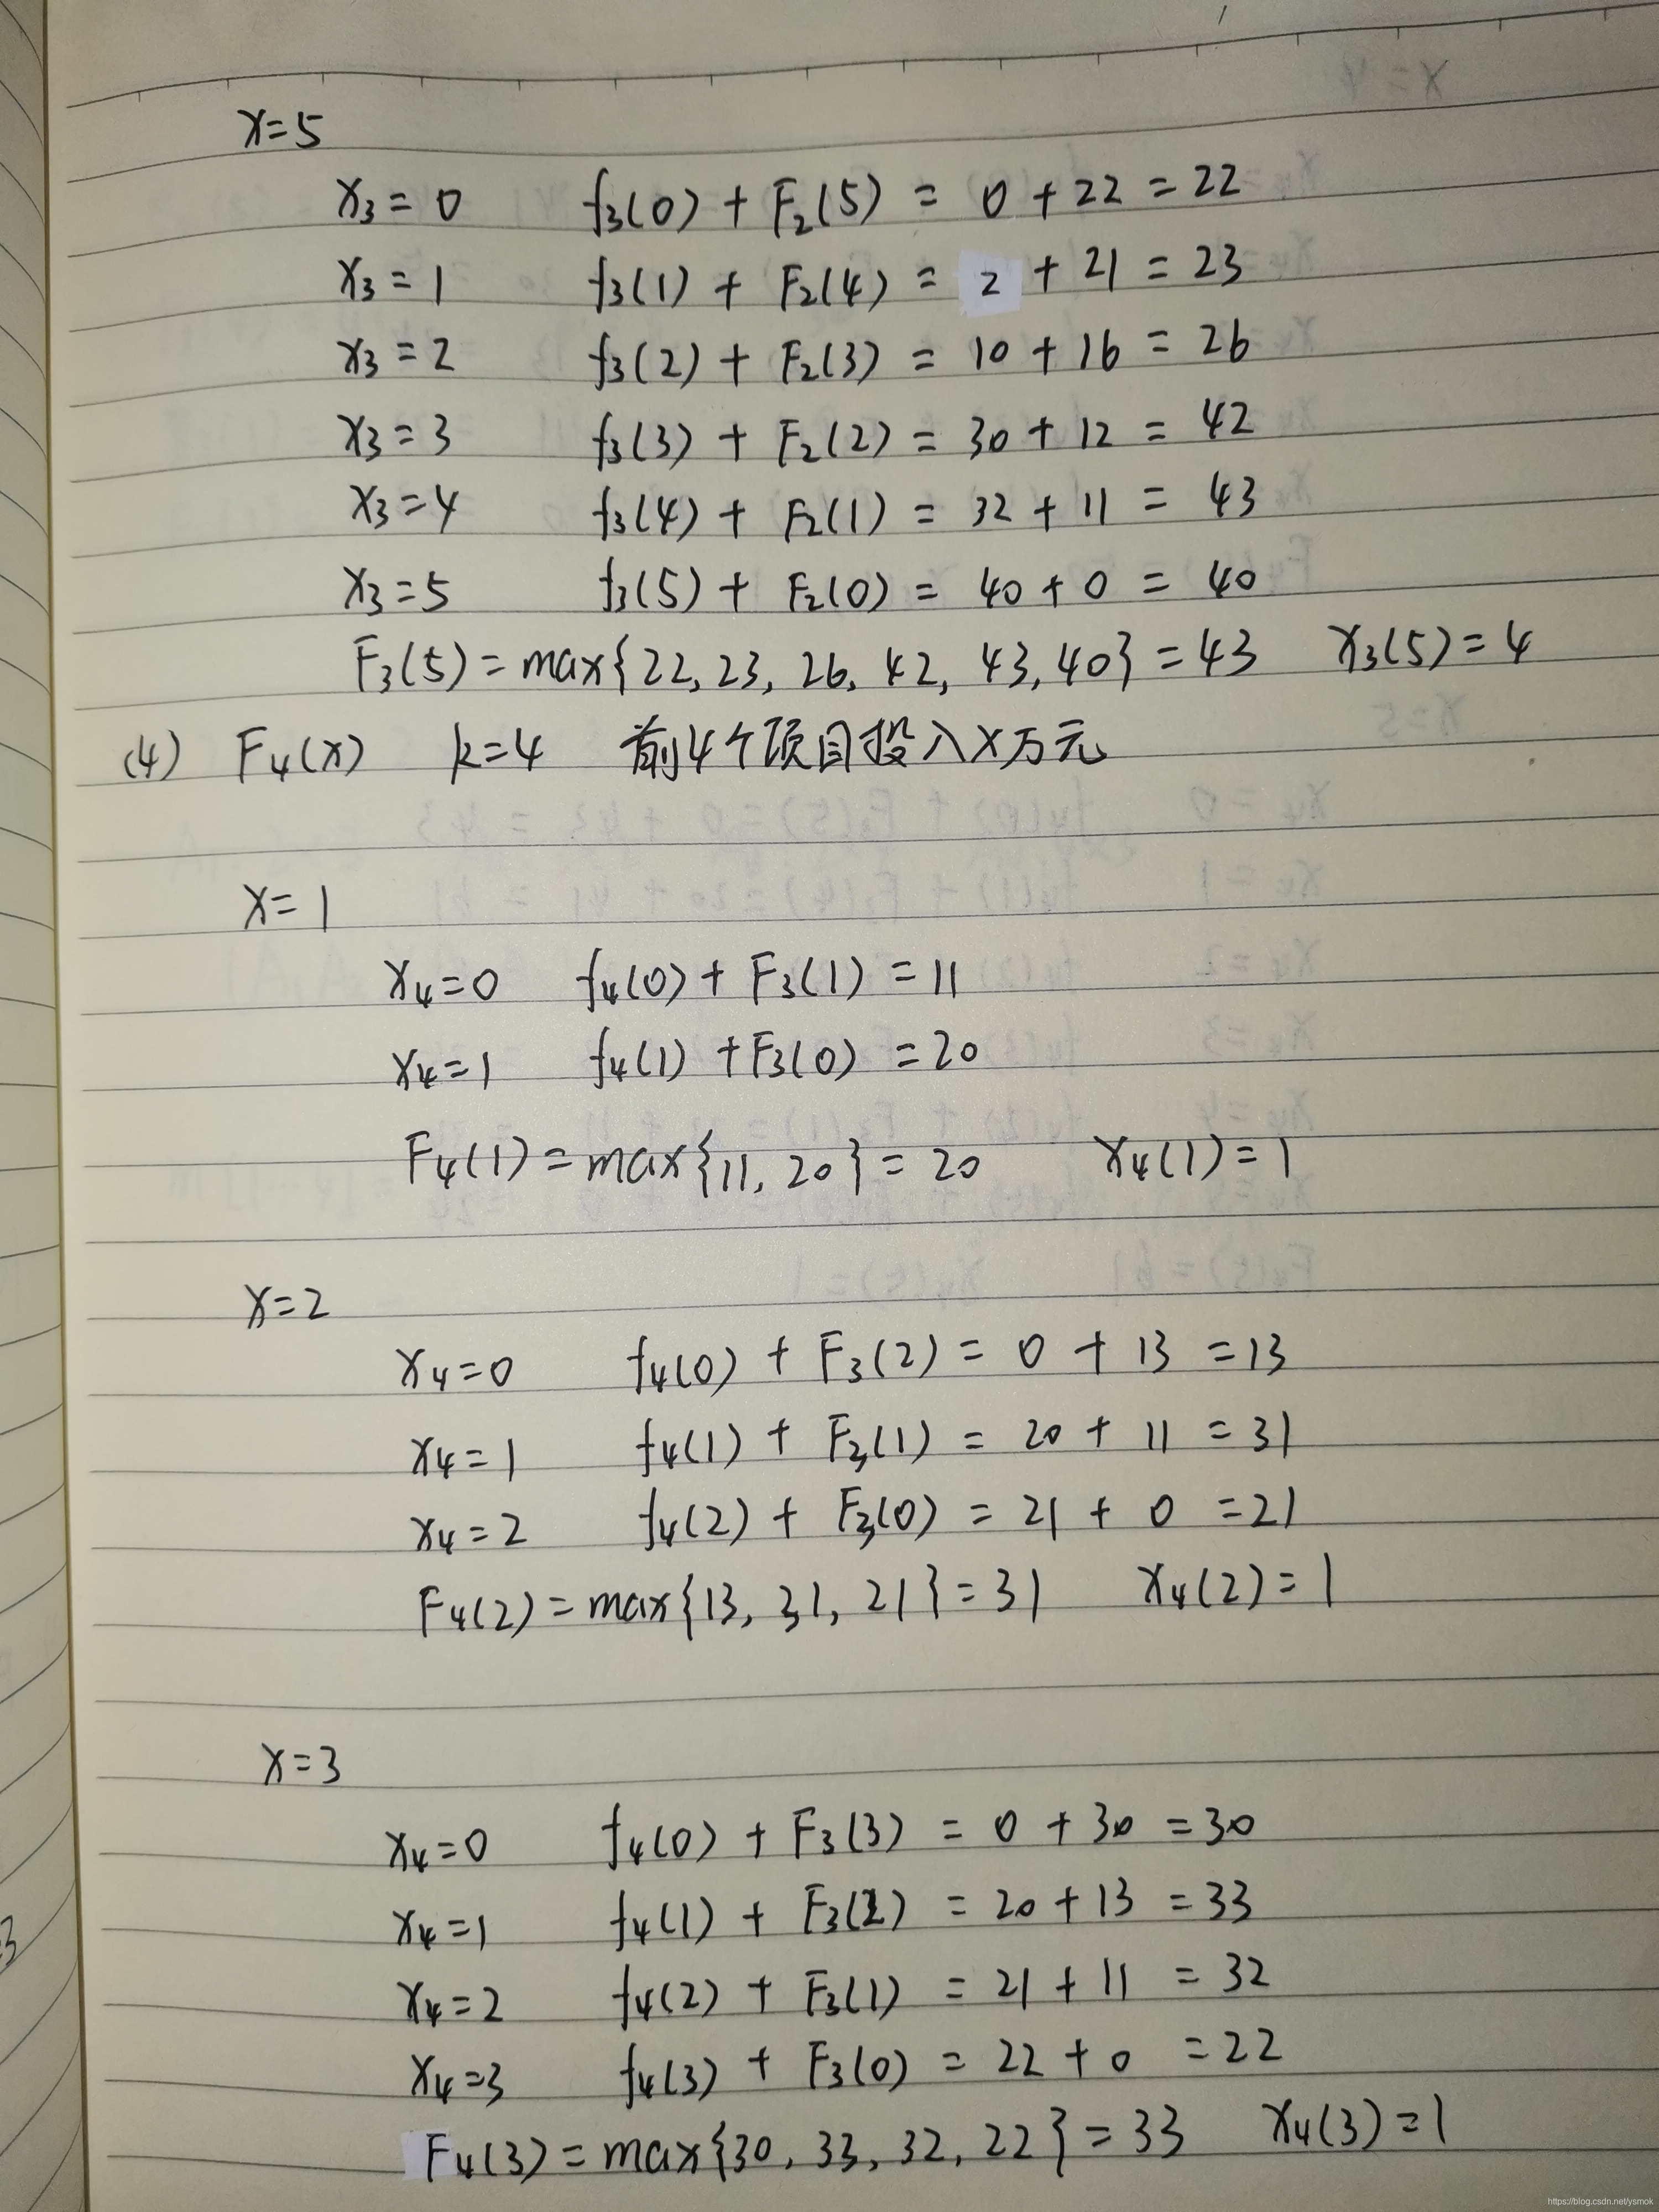 x=5
x₃=0 f₃(0) + F₂(5) = 0 + 22 = 22
x₃=1 f₃(1) + F₂(4) = 2 + 21 = 23
x₃=2 f₃(2) + F₂(3) = 10 + 16 = 26
x₃=3 f₃(3) + F₂(2) = 30 + 12 = 42
x₃=4 f₃(4) + F₂(1) = 32 + 11 = 43
x₃=5 f₃(5) + F₂(0) = 40 + 0 = 40
F₃(5) = max{22, 23, 26, 42, 43, 40} = 43 x₃(5) = 4
(4) F₄(x) k=4 前4个项目投入x万元
x=1
x₄=0 f₄(0) + F₃(1) = 11
x₄=1 f₄(1) + F₃(0) = 20
F₄(1) = max{11, 20} = 20 x₄(1) = 1
x=2
x₄=0 f₄(0) + F₃(2) = 0 + 13 = 13
x₄=1 f₄(1) + F₃(1) = 20 + 11 = 31
x₄=2 f₄(2) + F₃(0) = 21 + 0 = 21
F₄(2) = max{13, 31, 21} = 31 x₄(2) = 1
x=3
x₄=0 f₄(0) + F₃(3) = 0 + 30 = 30
x₄=1 f₄(1) + F₃(2) = 20 + 13 = 33
x₄=2 f₄(2) + F₃(1) = 21 + 11 = 32
x₄=3 f₄(3) + F₃(0) = 22 + 0 = 22
F₄(3) = max{30, 33, 32, 22} = 33 x₄(3) = 1
https://blog.csdn.net/ysmok